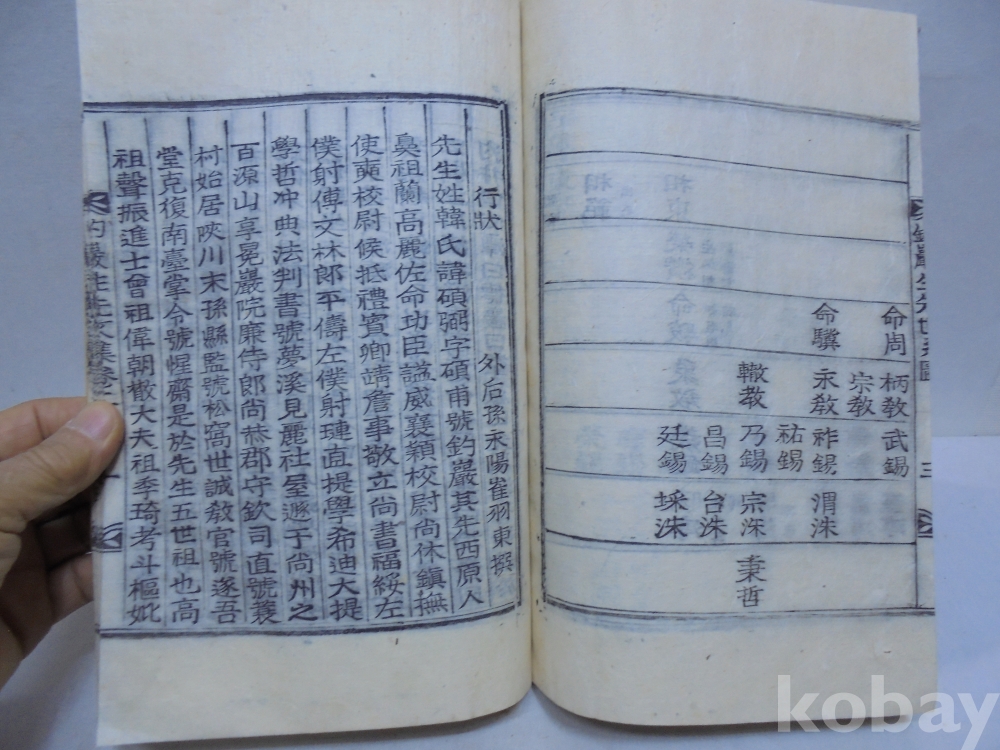 命周 命驥
柄敎 宗敎 永敎 轍敎
武錫 祚錫 祐錫 乃錫 昌錫 廷錫
渭洙 宗洙 台洙 埰洙
秉哲
三
行狀
外后孫永陽崔羽東撰
先生姓韓氏諱碩弼字碩甫號釣巖其先西原人
鼻祖蘭高麗佐命功臣諡威襄穎校尉尙休鎭撫
使奭校尉候抵禮賓卿靖詹事敬立尙書福綏左
僕射傅文林郞平儔左僕射璉直提學希迪大提
學哲冲典法判書號夢溪見麗社屋遯于尙州之
百源山享冕巖院廉侍郞尙恭郡守欽司直號蓑
村始居陜川末孫縣監號松窩世誠敎官號遂吾
堂克復南臺掌令號惺齋是於先生五世祖也高
祖聲振進士曾祖偉朝散大夫祖季琦考斗樞妣
kobay